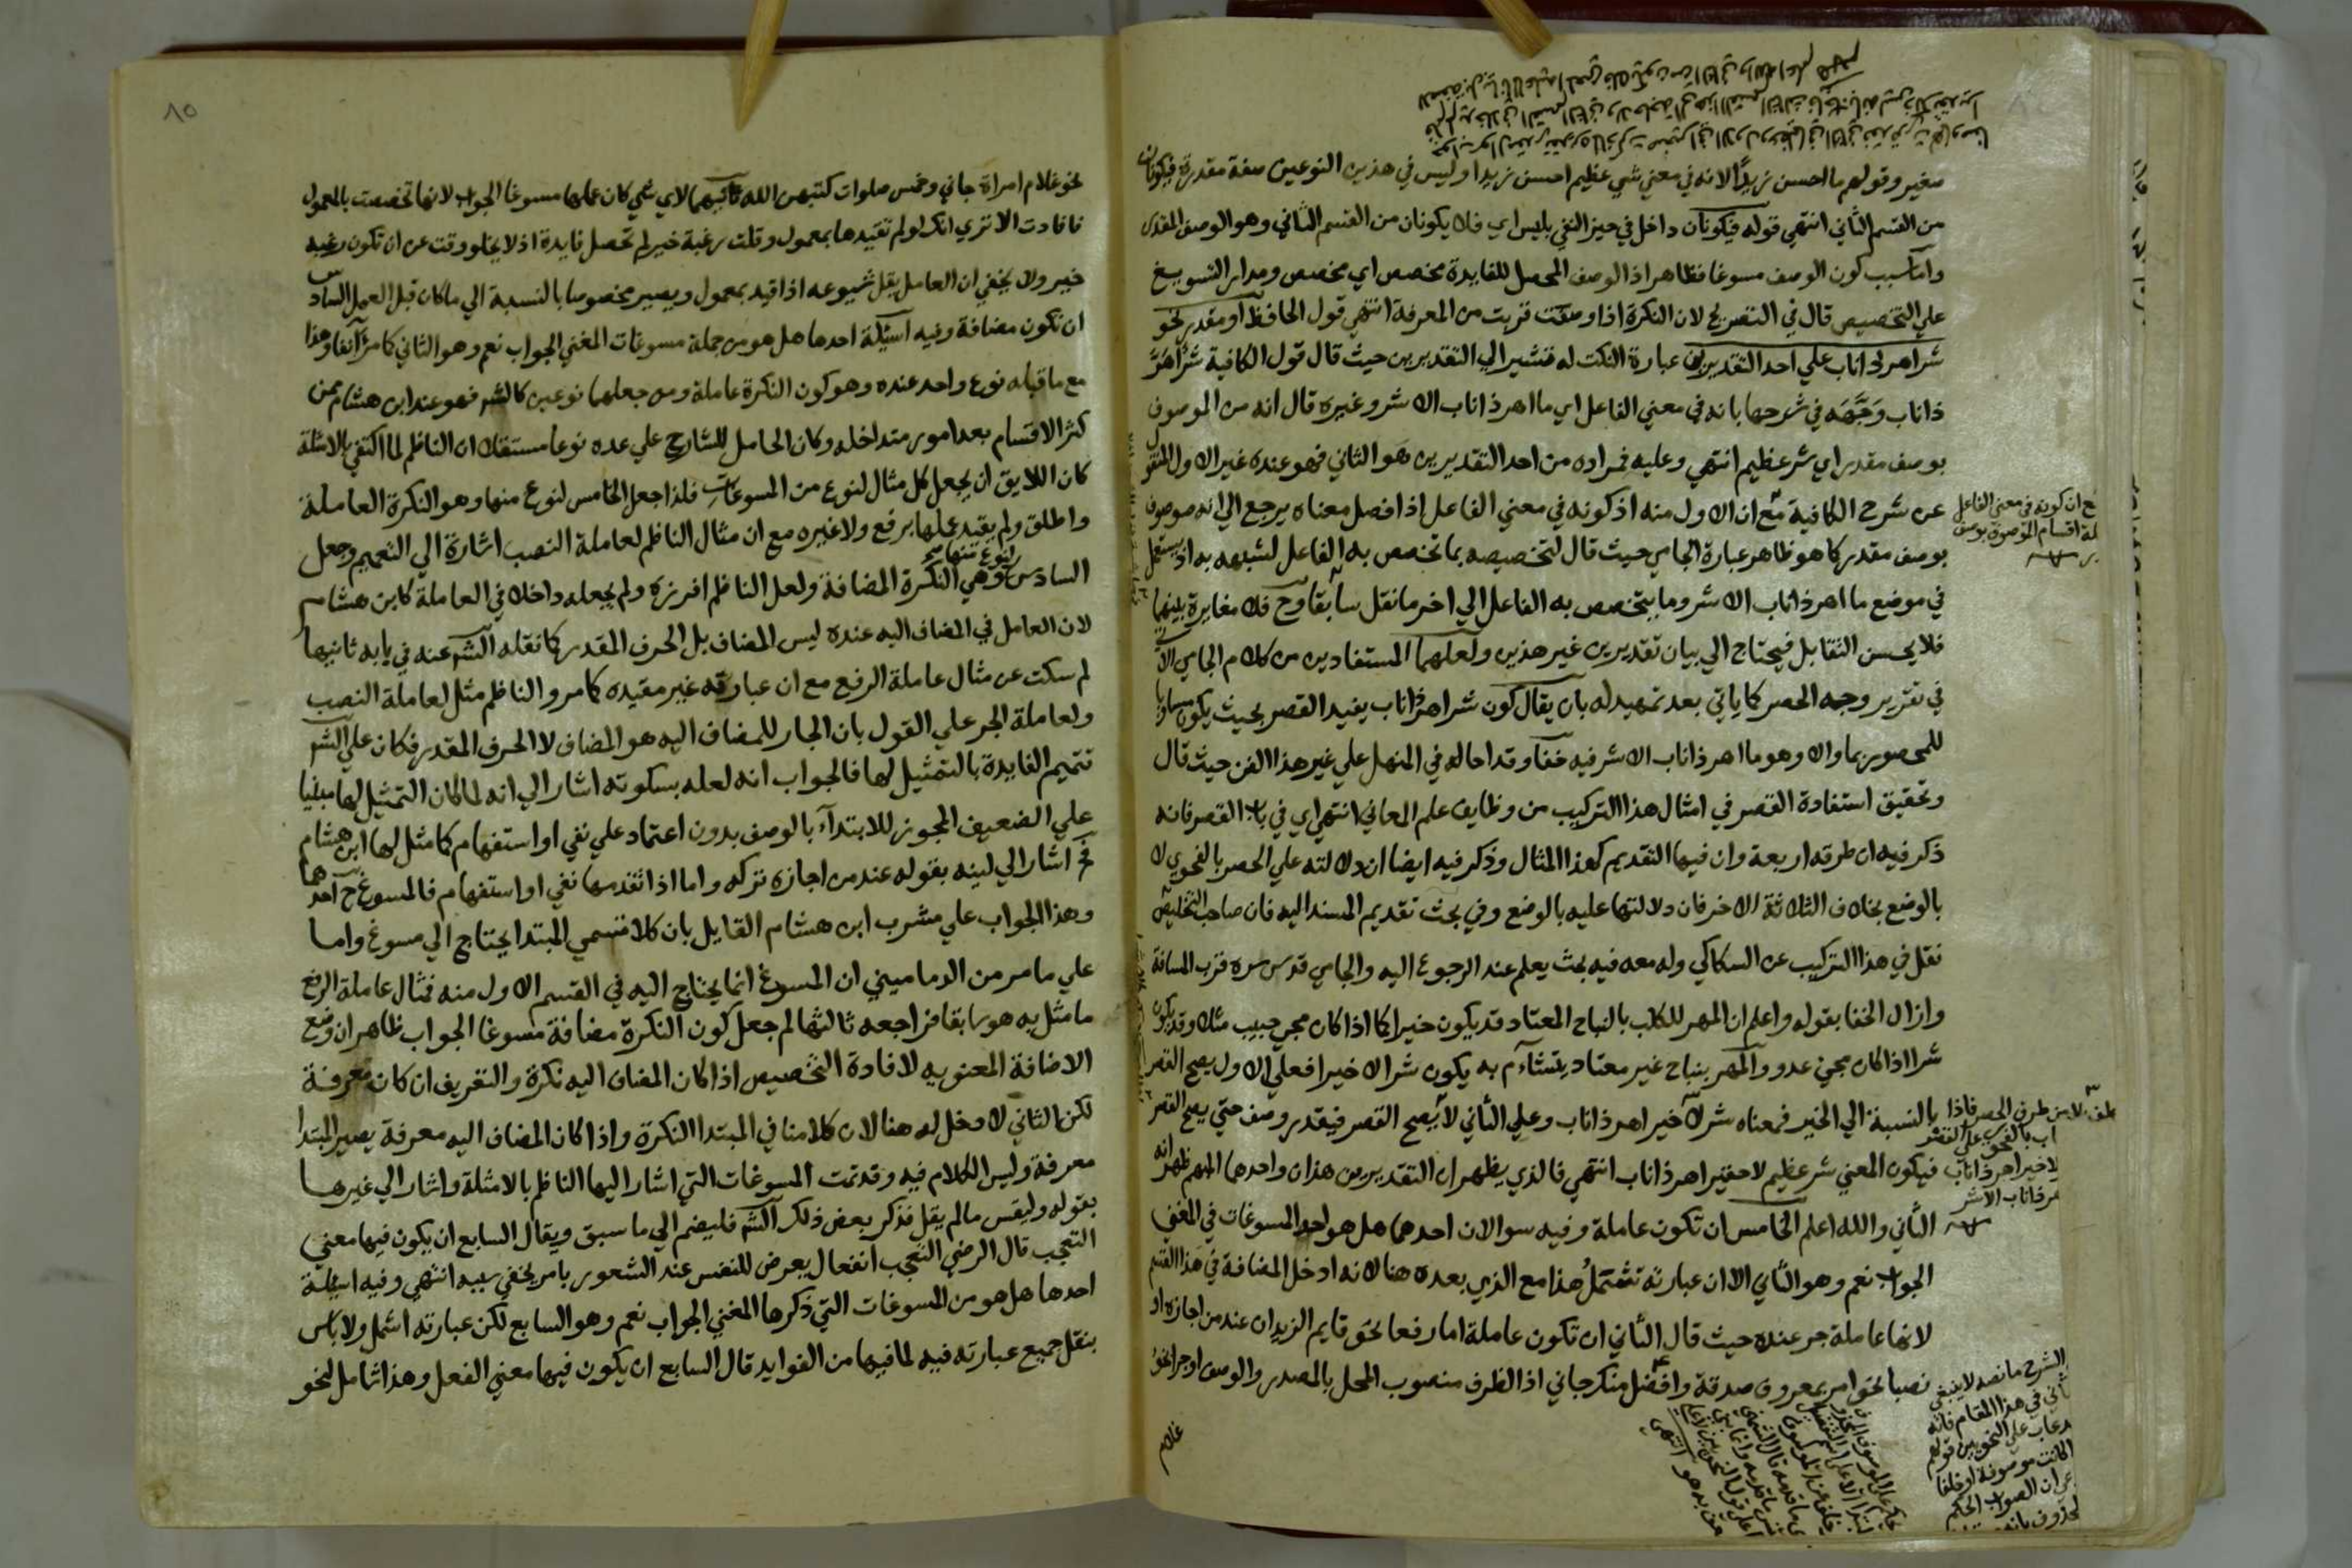 صغير وقولهم ما احسن زيدًا لانه في معني شي عظيم احسن زيدا وليس في هذين النوعين صفة مقدرة فيكونان
من القسم الثاني انتهي قوله فيكونان داخل في حيز النفي بليس اي فلا يكونان من القسم الثاني وهو الوصف المقدر
واما سبب كون الوصف مسوغا فظاهر اذ الوصف المحصل للفايدة مخصص اي مخصص ومدار التسويغ
علي التخصيص قال في التصريح لان النكرة اذا وصفت قربت من المعرفة انتهي قول الحافظ او مقدر نحو
شر اهر ذا ناب علي احد التقديرين عبارة النكت له فتشير الي التقديرين حيث قال قول الكافية شرٌّ اهرَّ
ذا ناب وَجَّهَه في شرحها بانه في معني الفاعل اي ما اهر ذا ناب الا شر وغيره قال انه من الموصوف
بوصف مقدر اي شر عظيم انتهي وعليه فمراده من احد التقديرين هو الثاني فهو عنده غير الاول المنقول
عن شرح الكافية مع ان الاول منه اذ كونه في معني الفاعل اذا فصل معناه يرجع الي انه موصوف
بوصف مقدر كما هو ظاهر عبارة الجامي حيث قال لتخصيصه بما تخصص به الفاعل لشبهه به اذ يستعمل
في موضع ما اهر ذا ناب الا شر وما يتخصص به الفاعل الي اخر ما نقل سابقا وح فلا مغايرة بينهما
فلا يحسن التقابل فيحتاج الي بيان تقديرين غير هذين ولعلهما المستفادين من كلام الجامي الآتي
في تقرير وجه الحصر كما ياتي بعد تمهيد له بان يقال كون شر اهر ذا ناب يفيد القصر بحيث يكون مساويا
للمحصور بما والا وهو ما اهر ذا ناب الا شر فيه خفا وقد احاله في المنهل علي غير هذا الفن حيث قال
وتحقيق استفادة القصر في امثال هذا التركيب من وظايف علم المعاني انتهي اي في باب القصر فانه
ذكر فيه ان طرقه اربعة وان فيها التقديم كهذا المثال وذكر فيه ايضا ان دلالته علي الحصر بالفحوي لا
بالوضع بخلاف الثلاثة الاخر فان دلالتها عليه بالوضع وفي بحث تقديم المسند اليه فان صاحب التلخيص
نقل في هذا التركيب عن السكاكي وله معه فيه بحث يعلم عند الرجوع اليه والجامي قدس سره قرب المسافة
وازال الخفا بقوله واعلم ان المهر للكلب بالنباح المعتاد قد يكون خيرا كما اذا كان مجي حبيب مثلا وقد يكون
شرا اذا كان مجي عدو والمهر بنباح غير معتاد يتشاءم به يكون شرا لا خيرا فعلي الاول يصح القصر
بالنسبة الي الخير فمعناه شر لا خير اهر ذا ناب وعلي الثاني لا يصح القصر فيقدر وصف حتي يصح القصر
فيكون المعني شر عظيم لا حقير اهر ذا ناب انتهي فالذي يظهر ان التقديرين هذان واحدهما المبهم ظهر انه
الثاني والله اعلم الخامس ان تكون عاملة وفيه سوالان احدهما هل هو احد المسوغات في المغني
الجواب نعم وهو الثاني الا ان عبارته تشتمل هذا مع الذي بعده هنا لانه ادخل المضافة في هذا القسم
لانها عاملة جر عنده حيث قال الثاني ان تكون عاملة اما رفعا نحو قايم الزيدان عند من اجازه او
نصبا نحو امر بمعروف صدقة وافضل منك جاني اذ الظرف منصوب المحل بالمصدر والوصف او جرا نحو
غلام
ع ان كونه في معني الفاعل
لة اقسام الموصوفة بوصف
لا من طرق الحصر فاذا
لا خير اهر ذا ناب
هر ذا ناب الا شر
الشرح ما نصه لا ينبغي
في هذا المقام فانه
عاب علي النحويين قولهم
كانت موصوفة او خلفا
ان الصواب
٨٥
نحو غلام امراة جاني وخمس صلوات كتبهن الله ثانيهما لاي شي كان عملها مسوغا الجواب لانها تخصصت بالمعمول
فافادت الا تري انك لو لم تقيدها بمعمول وقلت رغبة خير لم تحصل فايدة اذ لا يخلو وقت عن ان تكون رغبة
خير ولا يخفي ان العامل يقل شيوعه اذا قيد بمعمول ويصير مخصوصا بالنسبة الي ما كان قبل العمل السادس
ان تكون مضافة وفيه اسئلة احدها هل هو من جملة مسوغات المغني الجواب نعم وهو الثاني كما مر آنفا وهذا
مع ما قبله نوع واحد عنده وهو كون النكرة عاملة ومن جعلهما نوعين كالشر فهو عند ابن هشام ممن
كثر الاقسام بعد امور متداخله وكان الحامل للشارح علي عده نوعا مستقلا ان الناظم لما اكتفي بالامثلة
كان اللايق ان يجعل كل مثال لنوع من المسوغات فلذا جعل الخامس لنوع منها وهو النكرة العاملة
واطلق ولم يقيد عملها برفع ولا غيره مع ان مثال الناظم لعاملة النصب اشارة الي التعميم وجعل
السادس لنوع منها صح وهي النكرة المضافة ولعل الناظم افرزه ولم يجعله داخلا في العاملة كابن هشام
لان العامل في المضاف اليه عنده ليس المضاف بل الحرف المقدر كما نقله الشر عنه في بابه ثانيها
لم سكت عن مثال عاملة الرفع مع ان عبارته غير مقيده كما مر والناظم مثل لعاملة النصب
ولعاملة الجر علي القول بان الجار للمضاف اليه هو المضاف لا الحرف المقدر فكان علي الشر
تتميم الفايدة بالتمثيل لها فالجواب انه لعله بسكوته اشار الي انه لما كان التمثيل لها مبنيا
علي الضعيف المجوز للابتداء بالوصف بدون اعتماد علي نفي او استفهام كما مثل لها ابن هشام
ثم اشار الي لينه بقوله عند من اجازه تركه واما اذا تقدمها نفي او استفهام فالمسوغ ح احدهما
وهذا الجواب علي مشرب ابن هشام القايل بان كلا قسمي المبتدا يحتاج الي مسوغ واما
علي ما مر من الدماميني ان المسوغ انما يحتاج اليه في القسم الاول منه فمثال عاملة الرفع
ما مثل به هو سابقا فراجعه ثالثها لم جعل كون النكرة مضافة مسوغا الجواب ظاهر ان وضع
الاضافة المعنويه لافادة التخصيص اذا كان المضاف اليه نكرة والتعريف ان كان معرفة
لكن الثاني لا دخل له هنا لان كلامنا في المبتدا النكرة واذا كان المضاف اليه معرفة يصير المبتدا
معرفة وليس الكلام فيه وقد تمت المسوغات التي اشار اليها الناظم بالامثلة واشار الي غيرها
بقوله وليقس ما لم يقل فذكر بعض ذلك الشر فليضم الي ما سبق ويقال السابع ان يكون فيها معني
التعجب قال الرضي التعجب انفعال يعرض للنفس عند الشعور بامر يخفي سببه انتهي وفيه اسئلة
احدها هل هو من المسوغات التي ذكرها المغني الجواب نعم وهو السابع لكن عبارته اشمل ولا باس
بنقل جميع عبارته فيه لما فيها من الفوايد قال السابع ان يكون فيها معني الفعل وهذا شامل لنحو